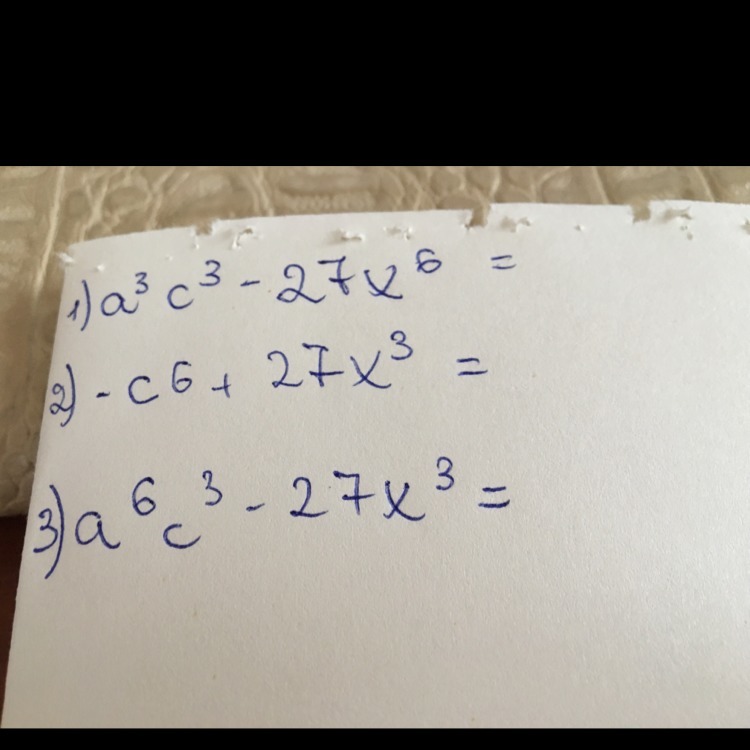 1) a³ c³ - 27x⁶ =
2) - c⁶ + 27x³ =
3) a⁶c³ - 27x³ =